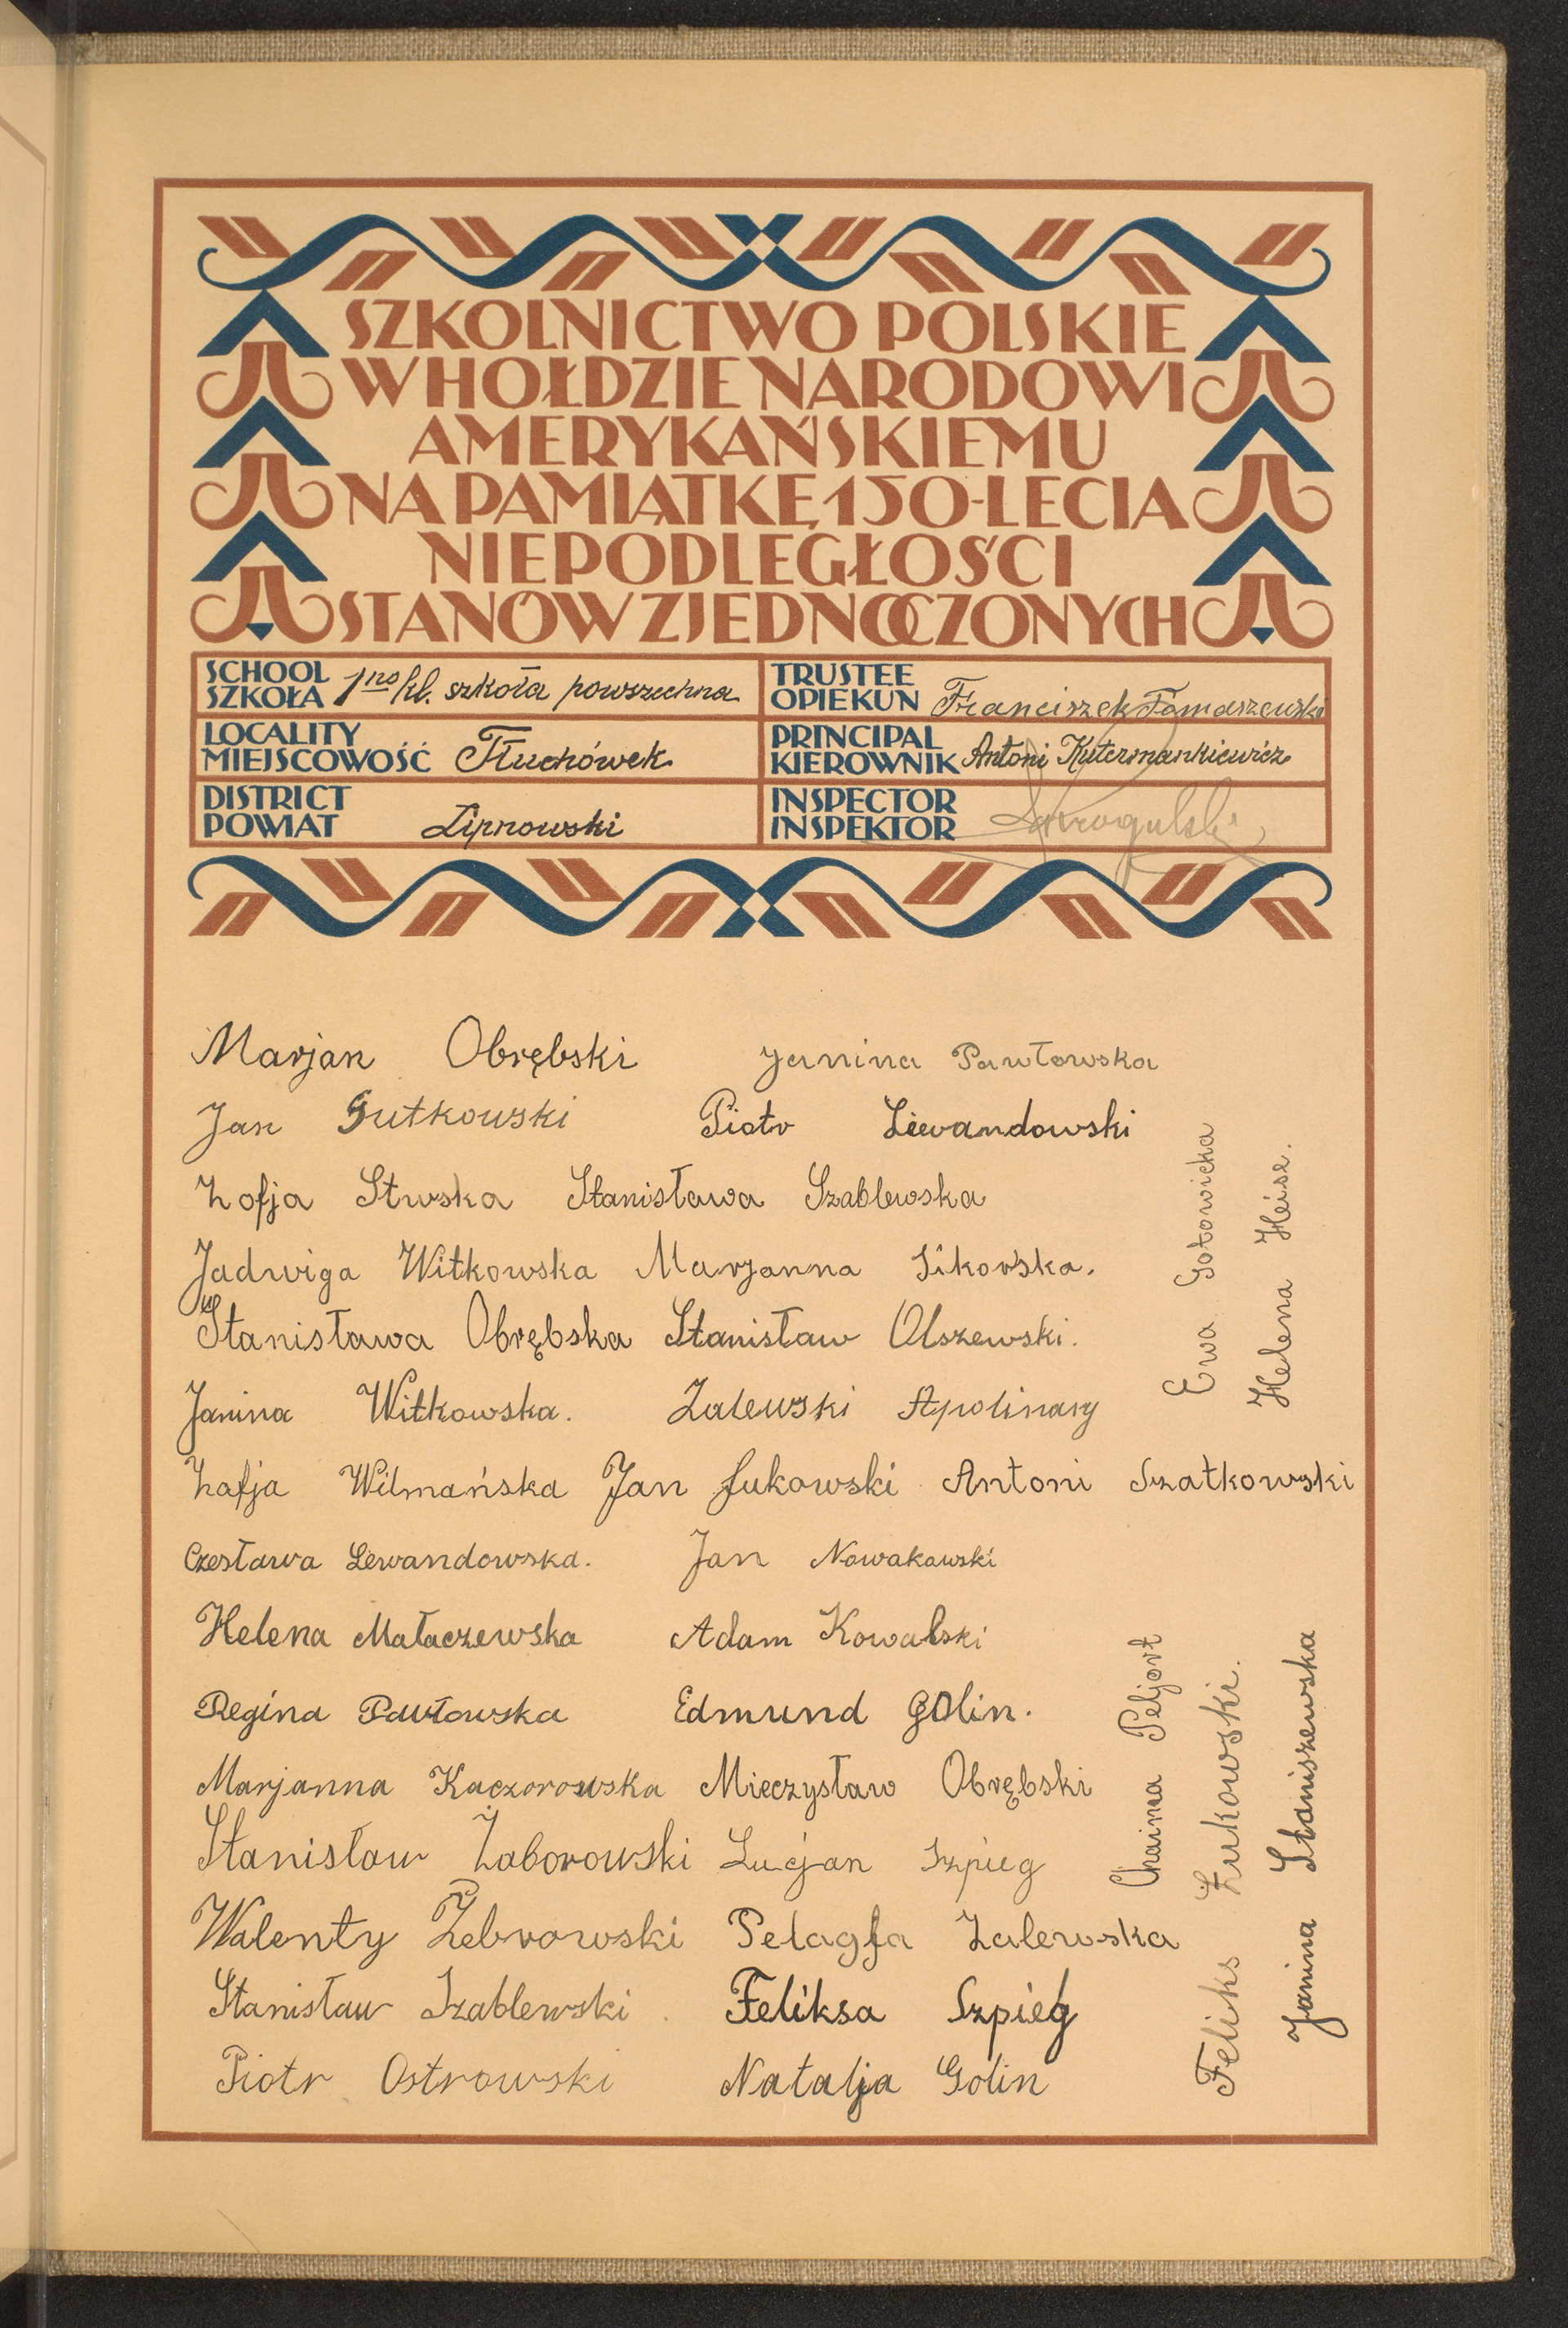 SZKOLNICTWO POLSKIE
W HOŁDZIE NARODOWI
AMERYKAŃSKIEMU
NA PAMIĄTKĘ 150-LECIA
NIEPODLEGŁOŚCI
STANÓW ZJEDNOCZONYCH
SCHOOL
SZKOŁA 1no kl. szkoła powszechna
TRUSTEE
OPIEKUN Franciszek Tomaszewski
LOCALITY
MIEJSCOWOŚĆ Tłuchówek
PRINCIPAL
KIEROWNIK Antoni Kutermankiewicz
DISTRICT
POWIAT Lipnowski
INSPECTOR
INSPEKTOR
Marjan Obrębski Janina Pawłowska
Jan Gutkowski Piotr Lewandowski
Zofja Stwska Stanisława Szablewska
Jadwiga Witkowska Marjanna Sikorska.
Stanisława Obrębska Stanisław Olszewski.
Janina Witkowska. Zalewski Apolinary
Zofja Wilmańska Jan Łukowski Antoni Szatkowski
Czesława Lewandowska. Jan Nowakowski
Helena Małaczewska Adam Kowalski
Regina Pawłowska Edmund Golin.
Marjanna Kaczorowska Mieczysław Obrębski
Stanisław Żaborowski Lucjan Szpieg
Walenty Żebrowski Pelagja Zalewska
Stanisław Szablewski Feliksa Szpieg
Piotr Ostrowski Natalja Golin
Ewa Gotowicka
Helena Heise.
Chaima Peljort
Feliks Żukowski.
Janina Staniszewska